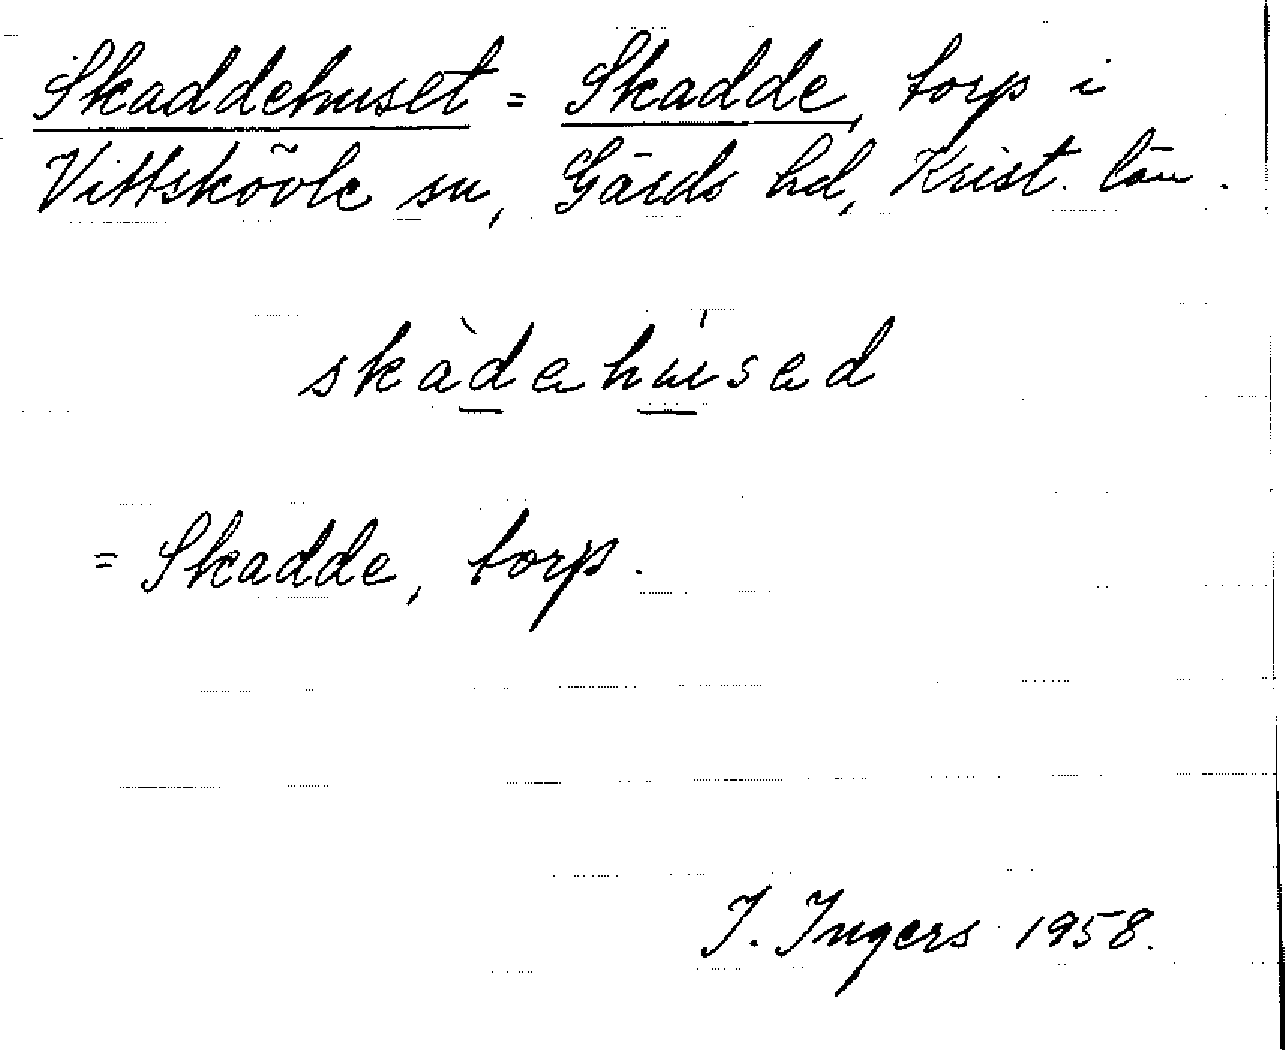 Skaddehuset = Skadde, torp i
Vittskövle sn, Gärds hd, Krist. län.
skàdehúsed
= Skadde, torp.
I. Ingers 1958.